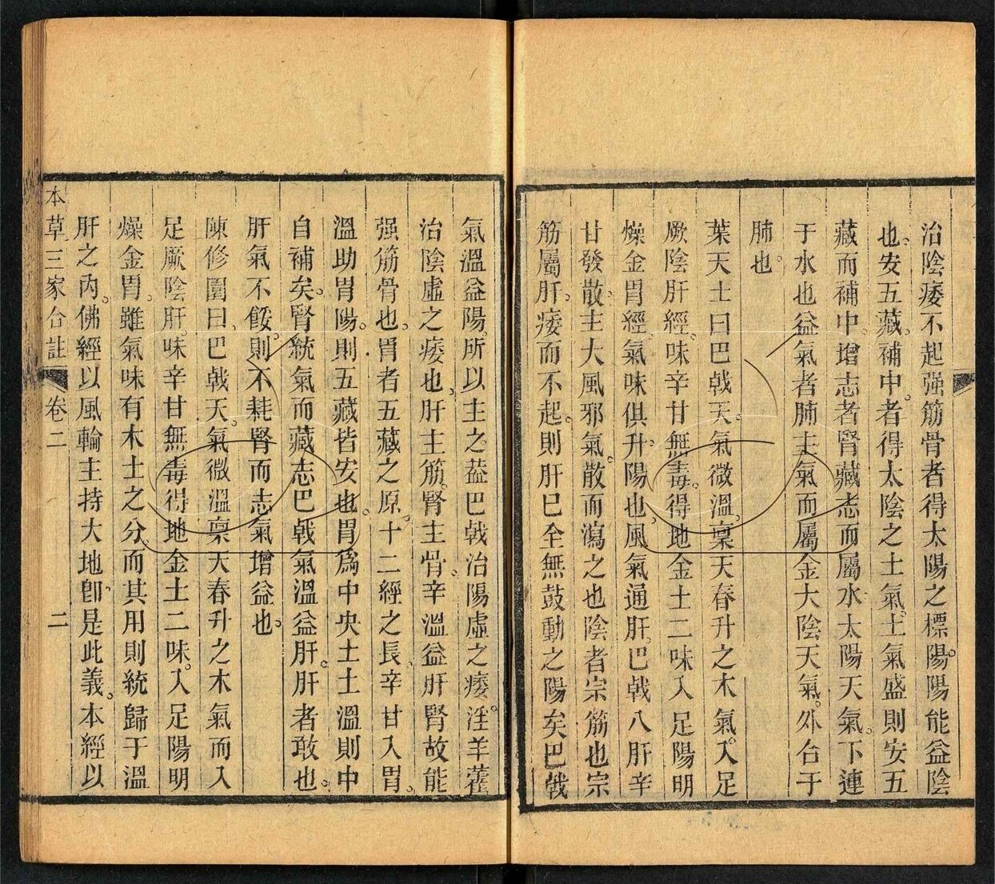 治陰痿不起强筋骨者得太陽之標陽陽能益陰
也。安五藏。補中。者得太陰之土氣。土氣盛則安五
藏而補中。增志者腎藏志而屬水太陽天氣。下連
于水也益氣者肺主氣而屬金大陰天氣。外合于
肺也。
葉天士曰巴戟天。氣微溫。稟天春升之木氣。入足
厥陰肝經。味辛甘無毒。得地金土二味入足陽明
燥金胃經。氣味俱升。陽也。風氣通肝。巴戟入肝辛
甘發散。主大風邪氣。散而瀉之也陰者宗筋也宗
筋屬肝。痿而不起。則肝巳全無鼓動之陽矣。巴戟
氣溫益陽所以主之葢巴戟治陽虛之痿。淫羊藿
治陰虛之痿也。肝主筋。腎主骨。辛溫益肝腎故能
强筋骨也。胃者五藏之原。十二經之長。辛甘入胃。
溫助胃陽。則五藏皆安也。胃爲中央土土溫則中
自補矣。腎統氣而藏志巴戟氣溫益肝。肝者敢也。
肝氣不餒。則不耗腎而志氣增益也。
陳修園曰。巴戟天。氣微溫稟天春升之木氣而入
足厥陰肝。味辛甘無毒得地金土二味。入足陽明
燥金胃。雖氣味有木土之分而其用則統歸于溫
肝之內。佛經以風輪主持大地卽是此義。本經以
本草三家合註
卷二
二